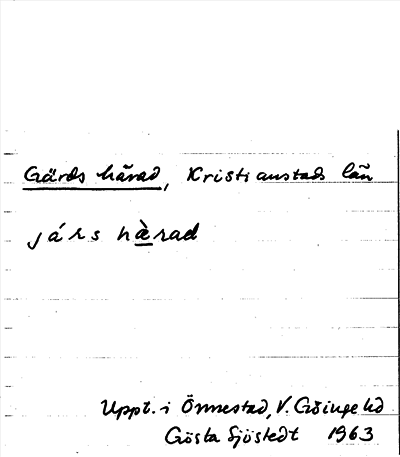 Gärds härad, Kristianstads län
járs hàrad
Uppt. i Önnestad, V. Göinge hd
Gösta Sjöstedt 1963